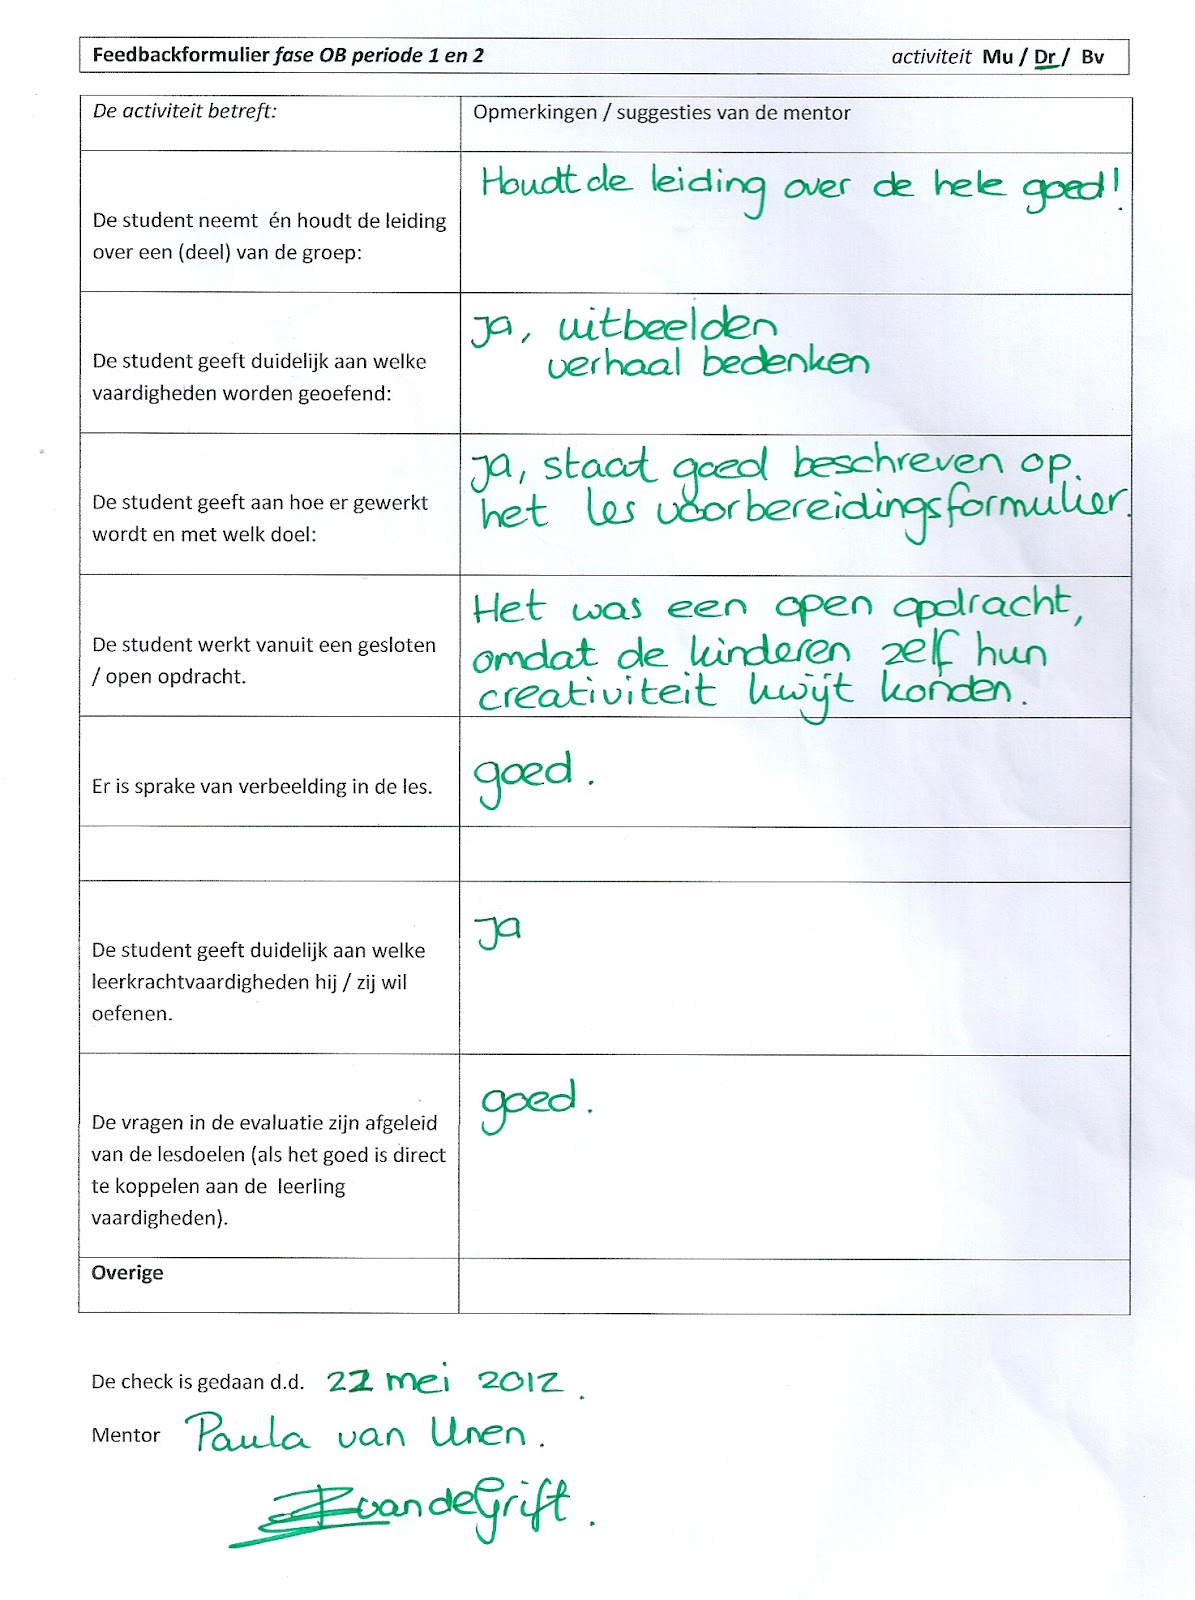 Feedbackformulier fase OB periode 1 en 2 activiteit Mu / Dr / Bv
De activiteit betreft: Opmerkingen / suggesties van de mentor
Houdt de leiding over de hele goed!
De student neemt én houdt de leiding
over een (deel) van de groep:
Ja, uitbeelden
verhaal bedenken
De student geeft duidelijk aan welke
vaardigheden worden geoefend:
Ja, staat goed beschreven op
het les voorbereidingsformulier.
De student geeft aan hoe er gewerkt
wordt en met welk doel:
Het was een open opdracht,
omdat de kinderen zelf hun
creativiteit kwijt konden.
De student werkt vanuit een gesloten
/ open opdracht.
goed.
Er is sprake van verbeelding in de les.
Ja
De student geeft duidelijk aan welke
leerkrachtvaardigheden hij / zij wil
oefenen.
goed.
De vragen in de evaluatie zijn afgeleid
van de lesdoelen (als het goed is direct
te koppelen aan de leerling
vaardigheden).
Overige
De check is gedaan d.d. 22 mei 2012.
Mentor Paula van Unen.
vandeGrift.